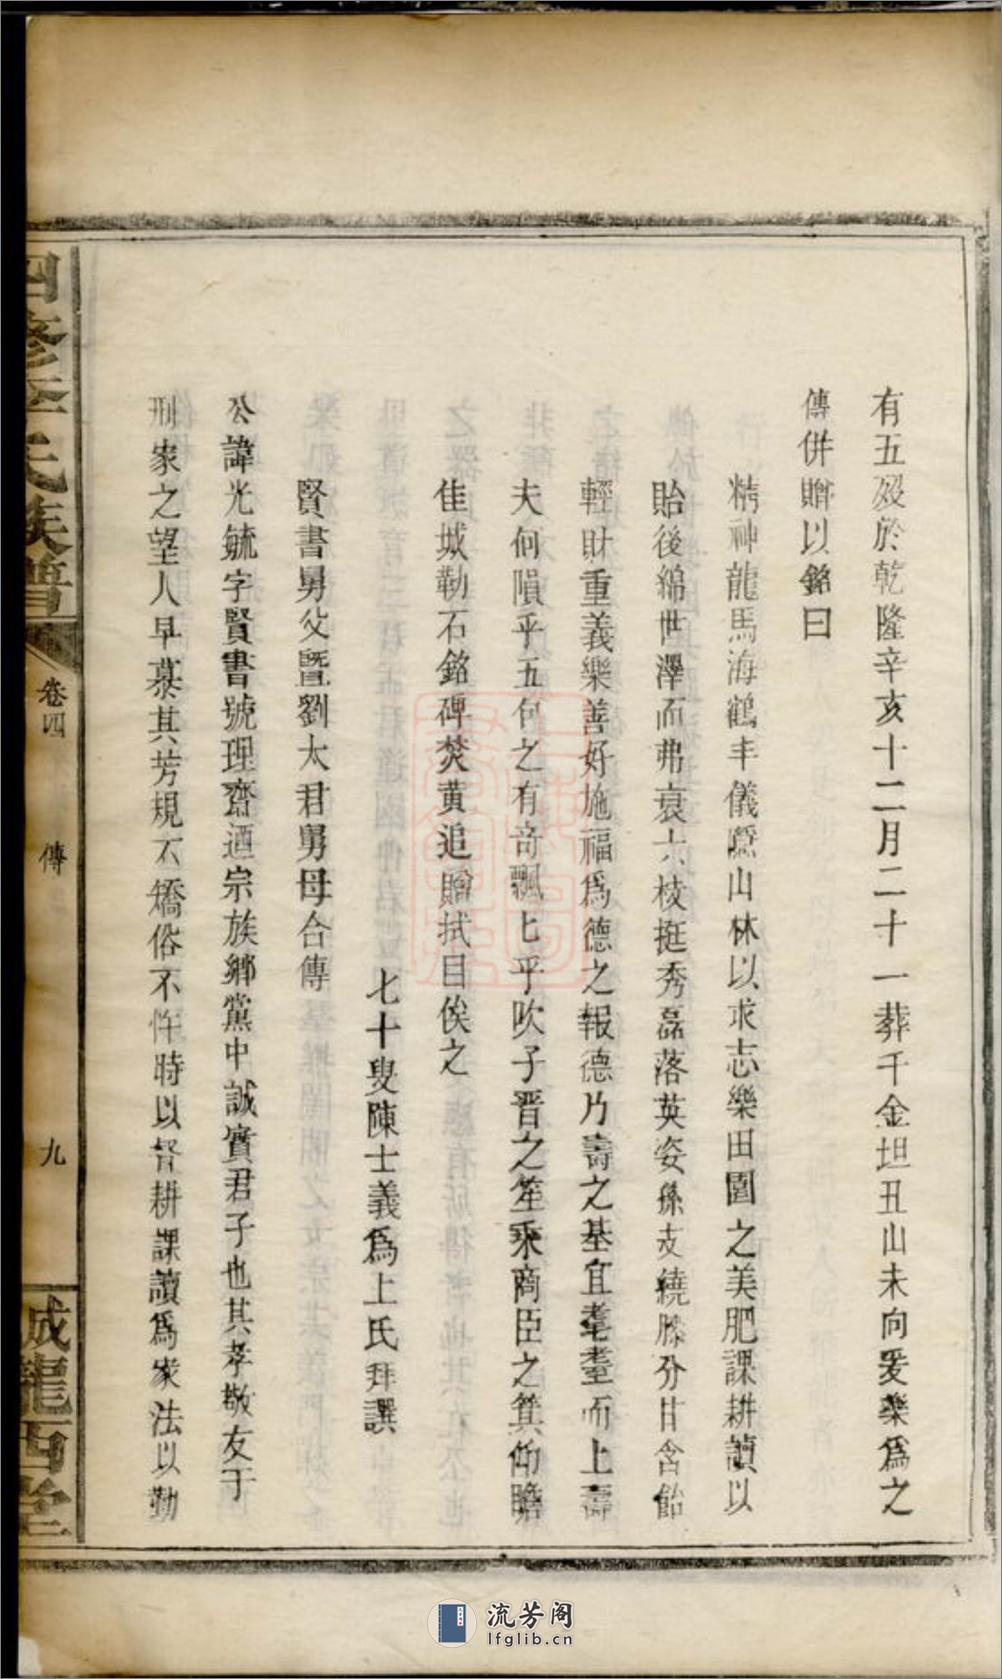 有五殁於乾隆辛亥十二月二十一葬千金坦丑山未向爰樂爲之
傳併贈以銘曰
精神龍馬海鶴丰儀隱山林以求志樂田園之美肥課耕讀以
貽後綿世澤而弗衰六枝挺秀磊落英姿孫支繞膝分甘含飴
輕財重義樂善好施福爲德之報德乃壽之基宜耄耋而上壽
夫何隕乎五旬之有奇飄七乎吹子晋之笙乘商臣之箕仰瞻
佳城勒石銘碑焚黄追贈拭目俟之
七十叟陳士義爲上氏拜譔
賢書舅父暨劉太君舅母合傳
公諱光毓字賢書號理齋迺宗族鄉黨中誠實君子也其孝敬友于
刑家之望人早慕其芳規不矯俗不忤時以督耕課讀爲家法以勤
四修李氏族譜
卷四
傳
九
龍西堂
流芳阁
lfglib.cn